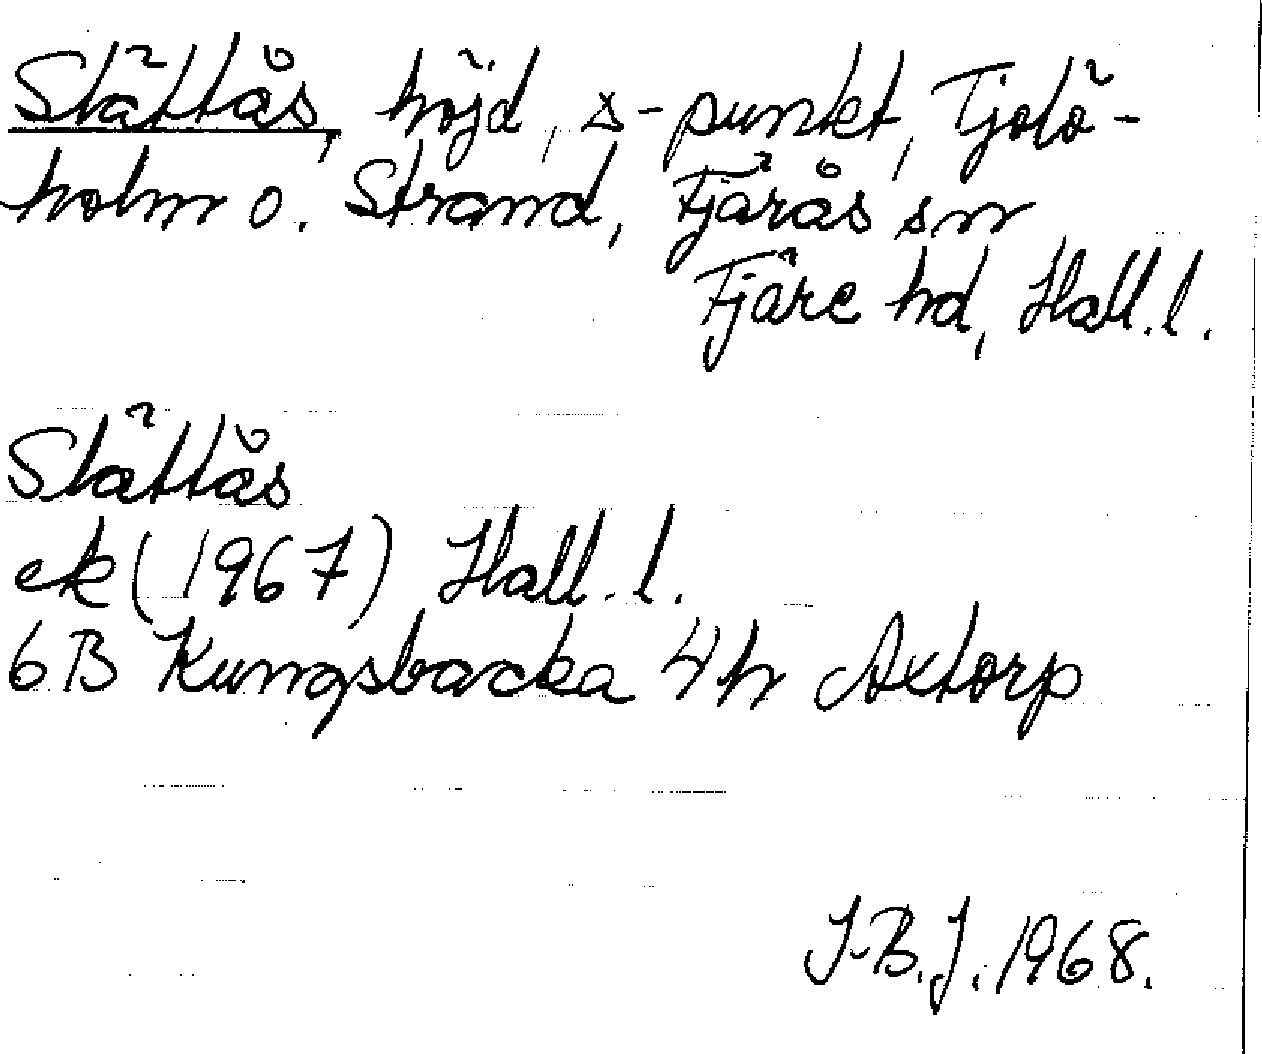 Slättås, höjd, s-punkt, Tjolö-
holm o. Strand, Fjärås sn
Fjäre hd, Hall.l.
Slättås
ek (1967) Hall.l.
6B Kungsbacka 4h Axtorp
J-B.J. 1968.